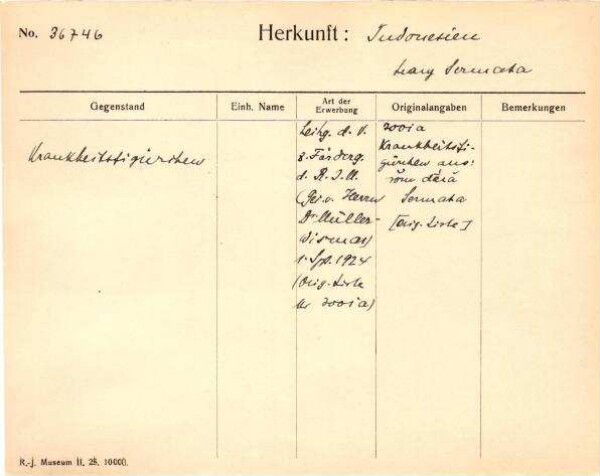 No. 36746
Herkunft: Indonesien
Sermata
Gegenstand
Einh. Name
Art der Erwerbung
Originalangaben
Bemerkungen
Krankheitsfigürchen
Leihg. d. V.
z. Förderg.
d. R.J.M.
(Gei. v. Herrn
Dr. Müller-
Wismar)
1. Spt. 1924
(Orig. Liste
Nr 200ia)
200ia
Krankheitsfi-
gürchen aus:
rōm dērā
Sermata
[Orig. Liste]
R.-j. Museum II. 25. 10000.